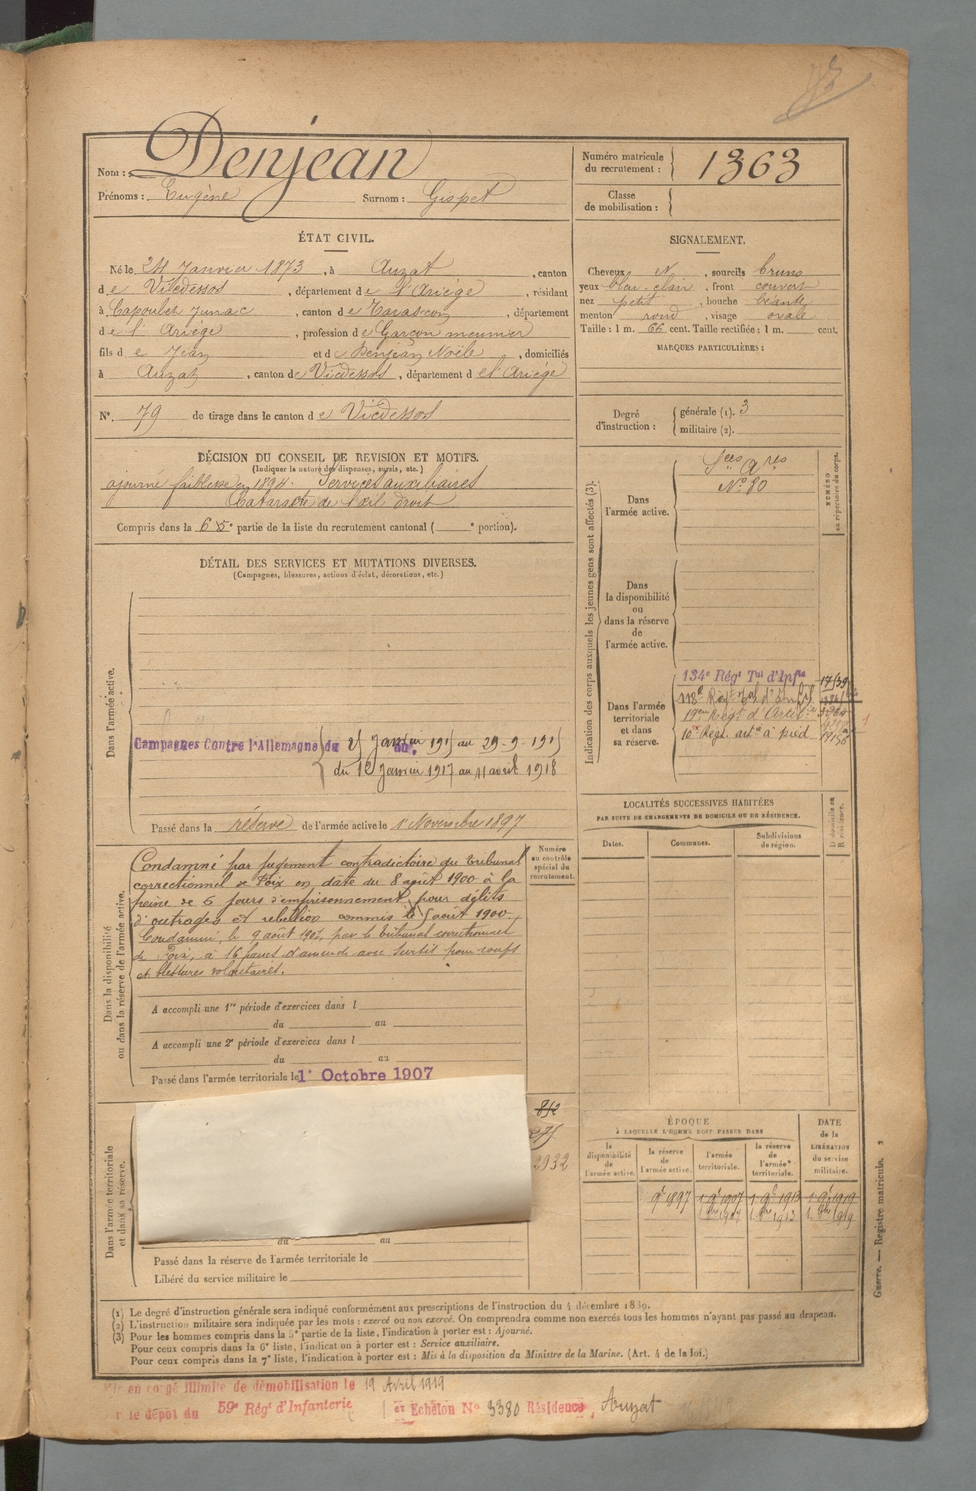 Nom : Denjean
Prénoms : Eugène Surnom : Gispet
Numéro matricule du recrutement : 1363
Classe de mobilisation :
ÉTAT CIVIL.
Né le 24 Janvier 1873, à Auzat, canton
de Vicdessos, département de l'Ariège, résidant
à Capoulet Junac, canton de Tarascon, département
de l'Ariège, profession de Garçon meunier
fils de Jean et de Denjean Noële, domiciliés
à Auzat, canton de Vicdessos, département de l'Ariège
N° 79 de tirage dans le canton de Vicdessos
SIGNALEMENT.
Cheveux N, sourcils bruns
yeux bleu-clair, front couvert
nez petit, bouche béante
menton rond, visage ovale
Taille : 1 m. 66 cent. Taille rectifiée : 1 m. cent.
MARQUES PARTICULIÈRES :
Degré d'instruction : générale (1). 3
militaire (2).
DÉCISION DU CONSEIL DE REVISION ET MOTIFS.
(Indiquer la nature des dispenses, sursis, etc.)
ajourné faiblesse en 1894. Services auxiliaires
Cataracte de l'œil droit
Compris dans la 6 5e partie de la liste du recrutement cantonal ( e portion).
DÉTAIL DES SERVICES ET MUTATIONS DIVERSES.
(Campagnes, blessures, actions d'éclat, décorations, etc.)
Dans l'armée active.
Campagnes Contre l'Allemagne du 25 Janvier 1915 au 29-9-1915
du 12 Janvier 1917 au 11 avril 1918
Passé dans la réserve de l'armée active le 1 Novembre 1897
Dans la disponibilité ou dans la réserve de l'armée active.
Condamné par jugement contradictoire du tribunal
correctionnel de Foix en date du 8 août 1900 à la
peine de 6 jours d'emprisonnement pour délits
d'outrages et rebellion commis le 5 août 1900
Condamné, le 9 août 1902, par le tribunal correctionnel
de Foix, à 16 francs d'amende avec sursis pour coups
et blessures volontaires.
A accompli une 1re période d'exercices dans l
du au
A accompli une 2e période d'exercices dans l
du au
Passé dans l'armée territoriale le 1er Octobre 1907
Numéro au contrôle spécial du recrutement.
812
275
2932
Dans l'armée territoriale et dans sa réserve.
du au
Passé dans la réserve de l'armée territoriale le
Libéré du service militaire le
Indication des corps auxquels les jeunes gens sont affectés (3).
NUMÉRO au répertoire du corps.
Dans l'armée active.
Sces Ares
N° 80
Dans la disponibilité ou dans la réserve de l'armée active.
Dans l'armée territoriale et dans sa réserve.
134e Régt Tal d'Infie
118e Régt Tal d'Infie
19eme Regt d'Artie
10e Régt. artie à pied
LOCALITÉS SUCCESSIVES HABITÉES
PAR SUITE DE CHANGEMENTS DE DOMICILE OU DE RÉSIDENCE.
Dates. Communes. Subdivisions de région. D. domicile ou R. résidence.
ÉPOQUE
À LAQUELLE L'HOMME DOIT PASSER DANS
la disponibilité de l'armée active. la réserve de l'armée active. l'armée territoriale. la réserve de l'armée territoriale.
DATE de la LIBÉRATION du service militaire.
9e 1897 1 9e 1907 1 9e 1913 1 9e 1919
1 1907 1 1913 1 1919
(1) Le degré d'instruction générale sera indiqué conformément aux prescriptions de l'instruction du 4 décembre 1889.
(2) L'instruction militaire sera indiquée par les mots : exercé ou non exercé. On comprendra comme non exercés tous les hommes n'ayant pas passé au drapeau.
(3) Pour les hommes compris dans la 5e partie de la liste, l'indication à porter est : Ajourné.
Pour ceux compris dans la 6e liste, l'indication à porter est : Service auxiliaire.
Pour ceux compris dans la 7e liste, l'indication à porter est : Mis à la disposition du Ministre de la Marine. (Art. 4 de la loi.)
Guerre. — Registre matricule. 2
en congé illimité de démobilisation le 19 Avril 1919
le dépôt du 59e Régt d'Infanterie 1er Echelon N° 3380 Résidence, Auzat